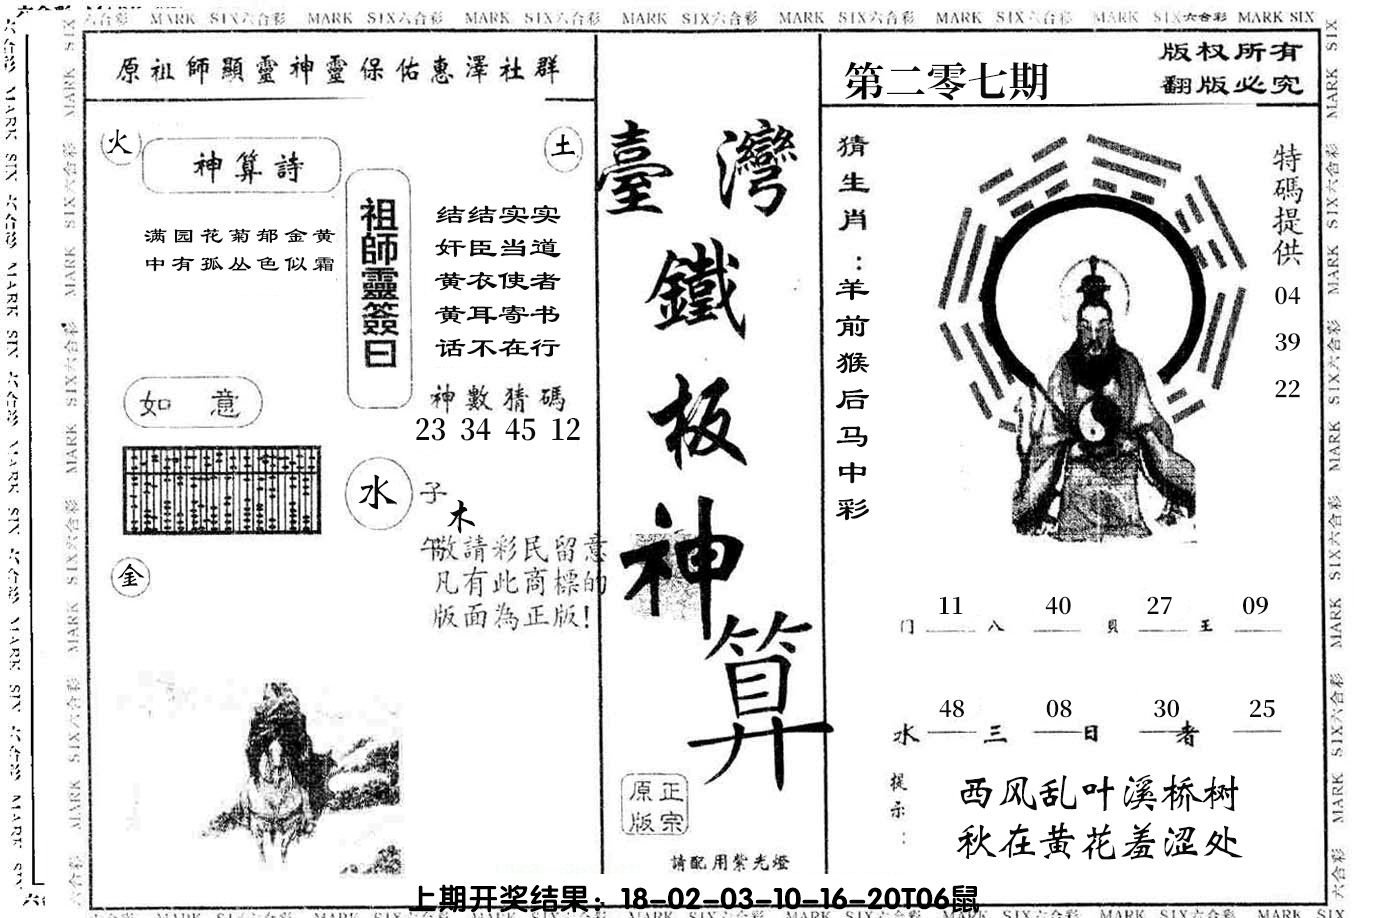 MARK SIX六合彩 MARK SIX六合彩 MARK SIX六合彩 MARK SIX六合彩 MARK SIX六合彩 MARK SIX六合彩 MARK SIX六合彩 MARK SIX
原祖師顯靈神靈保佑惠澤社群
火
神算詩
土
满园花菊郁金黄
中有孤丛色似霜
祖師靈簽曰
结结实实
奸臣当道
黄衣使者
黄耳寄书
话不在行
神數猜碼
23 34 45 12
如意
水
子
木
午
金
敬請彩民留意
凡有此商標的
版面為正版!
臺灣
鐵
板
神
算
正宗
原版
請配用紫光燈
第二零七期
版权所有
翻版必究
猜生肖:羊前猴后马中彩
特碼提供
04
39
22
门 11 八 40 貝 27 王 09
水 48 三 08 日 30 者 25
提示:
西风乱叶溪桥树
秋在黄花羞涩处
上期开奖结果：18-02-03-10-16-20T06鼠